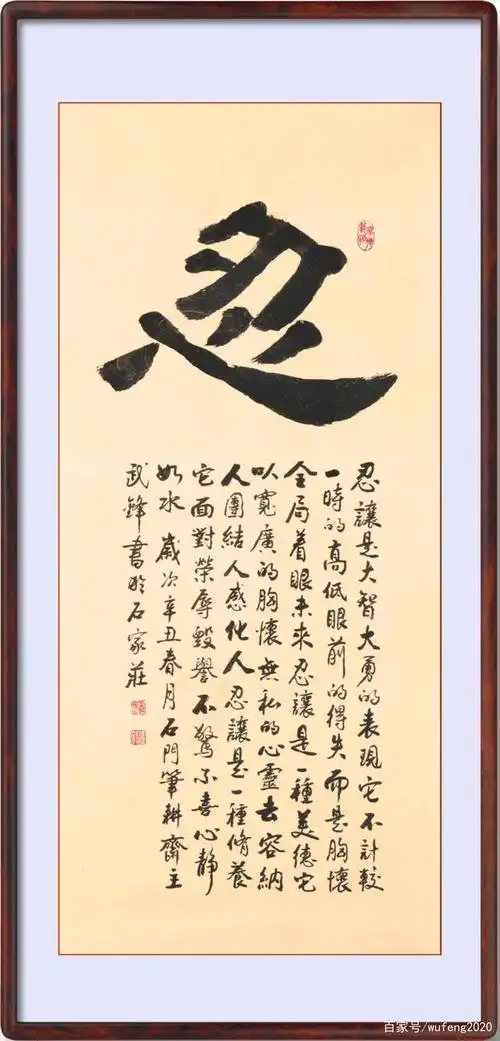 忍
忍讓是大智大勇的表現它不計較
一時的高低眼前的得失而是胸懷
全局着眼未来忍讓是一種美德它
以寬廣的胸懷無私的心靈去容納
人團結人感化人忍讓是一種脩養
它面對榮辱毀譽不驚不喜心靜
如水 歲次辛丑春月石門筆耕齋主
武鋒書於石家莊
百家号/wufeng2020